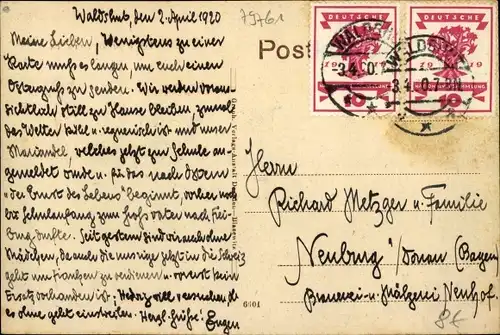 Waldshut, den 2. April 1920
79761
Meine Lieben, Wenigstens zu einer
Karte muß es langen, um euch einen
Ostergruß zu senden. Wir werden voraus-
sichtlich still zu Hause bleiben, zumal
das Wetter kühl u. regnerisch ist und unser
Mariandel, welches jetzt zur Schule an-
gemeldet wurde u. für das nach Ostern
"der Ernst des Lebens" beginnt, vorher noch
vor Schulanfang zum Großvater nach Frei-
burg durfte. Seit gestern sind wir auch ohne
Mädchen, da auch die unsrige jetzt in die Schweiz
geht um Franken zu verdienen u. vorerst kein
Ersatz vorhanden ist; Hedwig will versuchen, ob
es ohne geht einstweilen. Herzl. Grüße! Eugen
Post
DEUTSCHE
DEUTSCHE
10
10
WALDSHUT
3.4.
Herrn
Richard Metzger u. Familie
Neuburg a/Donau (Bayern)
Brauerei- u. Mälzerei Neuhof.
8€